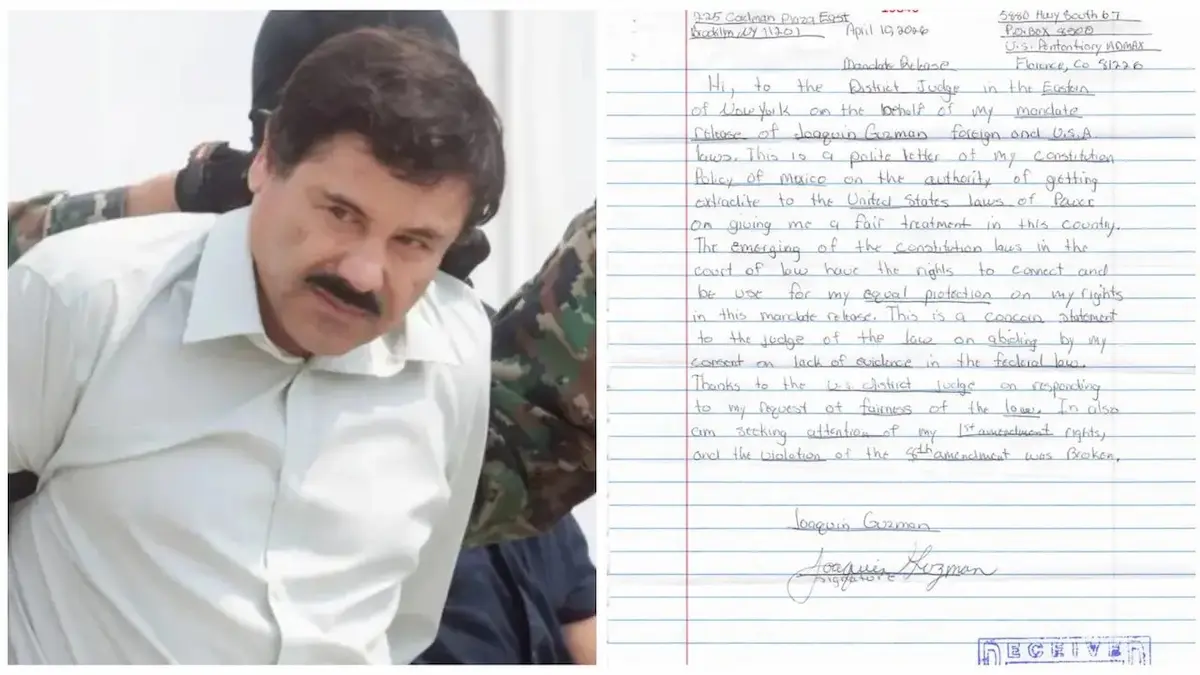 225 Cadman Plaza East
Brooklin, NY 11201
April 10, 2026
5880 Hwy South 67
P.O. Box 8500
U.S. Pententiary ADMAX
Florence, Co 81226
Mandate Release
Hi, to the District Judge in the Eastern
of New York on the behalf of my mandate
release of Joaquin Guzman foreign and U.S.A.
laws. This is a polite letter of my constitution
Policy of Mexico on the authority of getting
extradite to the United States laws of Power
on giving me a fair treatment in this country.
The emerging of the constitution laws in the
court of law have the rights to connect and
be use for my equal protection on my rights
in this mandate release. This is a concern statement
to the judge of the law on abiding by my
consent on lack of evidence in the federal law.
Thanks to the U.S. district judge on responding
to my request of fairness of the law. In also
am seeking attention of my 1st amendment rights,
and the violation of the 8th amendment was Broken.
Joaquin Guzman
Joaquin Guzman
Signature
RECEIVED